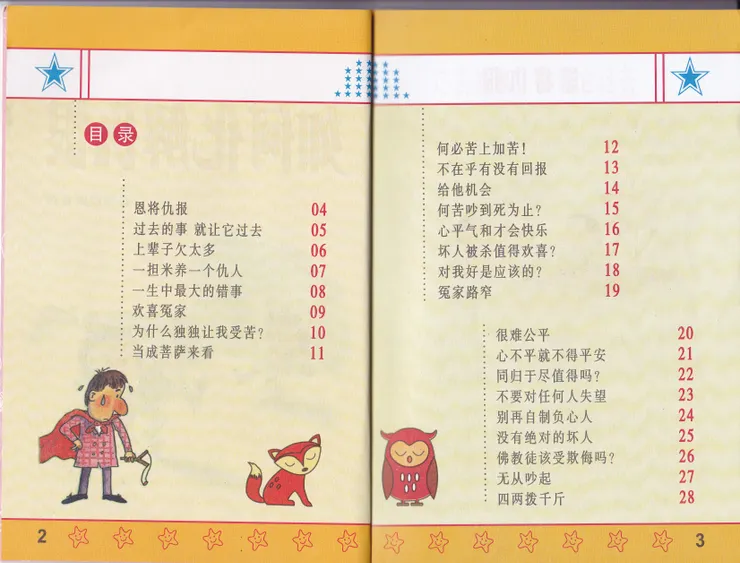 目录
恩将仇报 04
过去的事 就让它过去 05
上辈子欠太多 06
一担米养一个仇人 07
一生中最大的错事 08
欢喜冤家 09
为什么独独让我受苦? 10
当成菩萨来看 11
2
何必苦上加苦! 12
不在乎有没有回报 13
给他机会 14
何苦吵到死为止? 15
心平气和才会快乐 16
坏人被杀值得欢喜? 17
对我好是应该的? 18
冤家路窄 19
很难公平 20
心不平就不得平安 21
同归于尽值得吗? 22
不要对任何人失望 23
别再自制负心人 24
没有绝对的坏人 25
佛教徒该受欺侮吗? 26
无从吵起 27
四两拨千斤 28
3